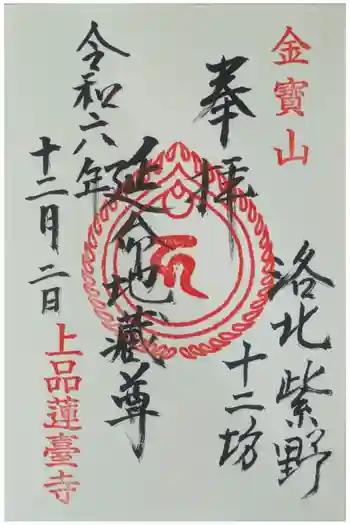 金寶山
奉拝
洛北紫野
十二坊
延命地蔵尊
令和六年
十二月二日
上品蓮臺寺